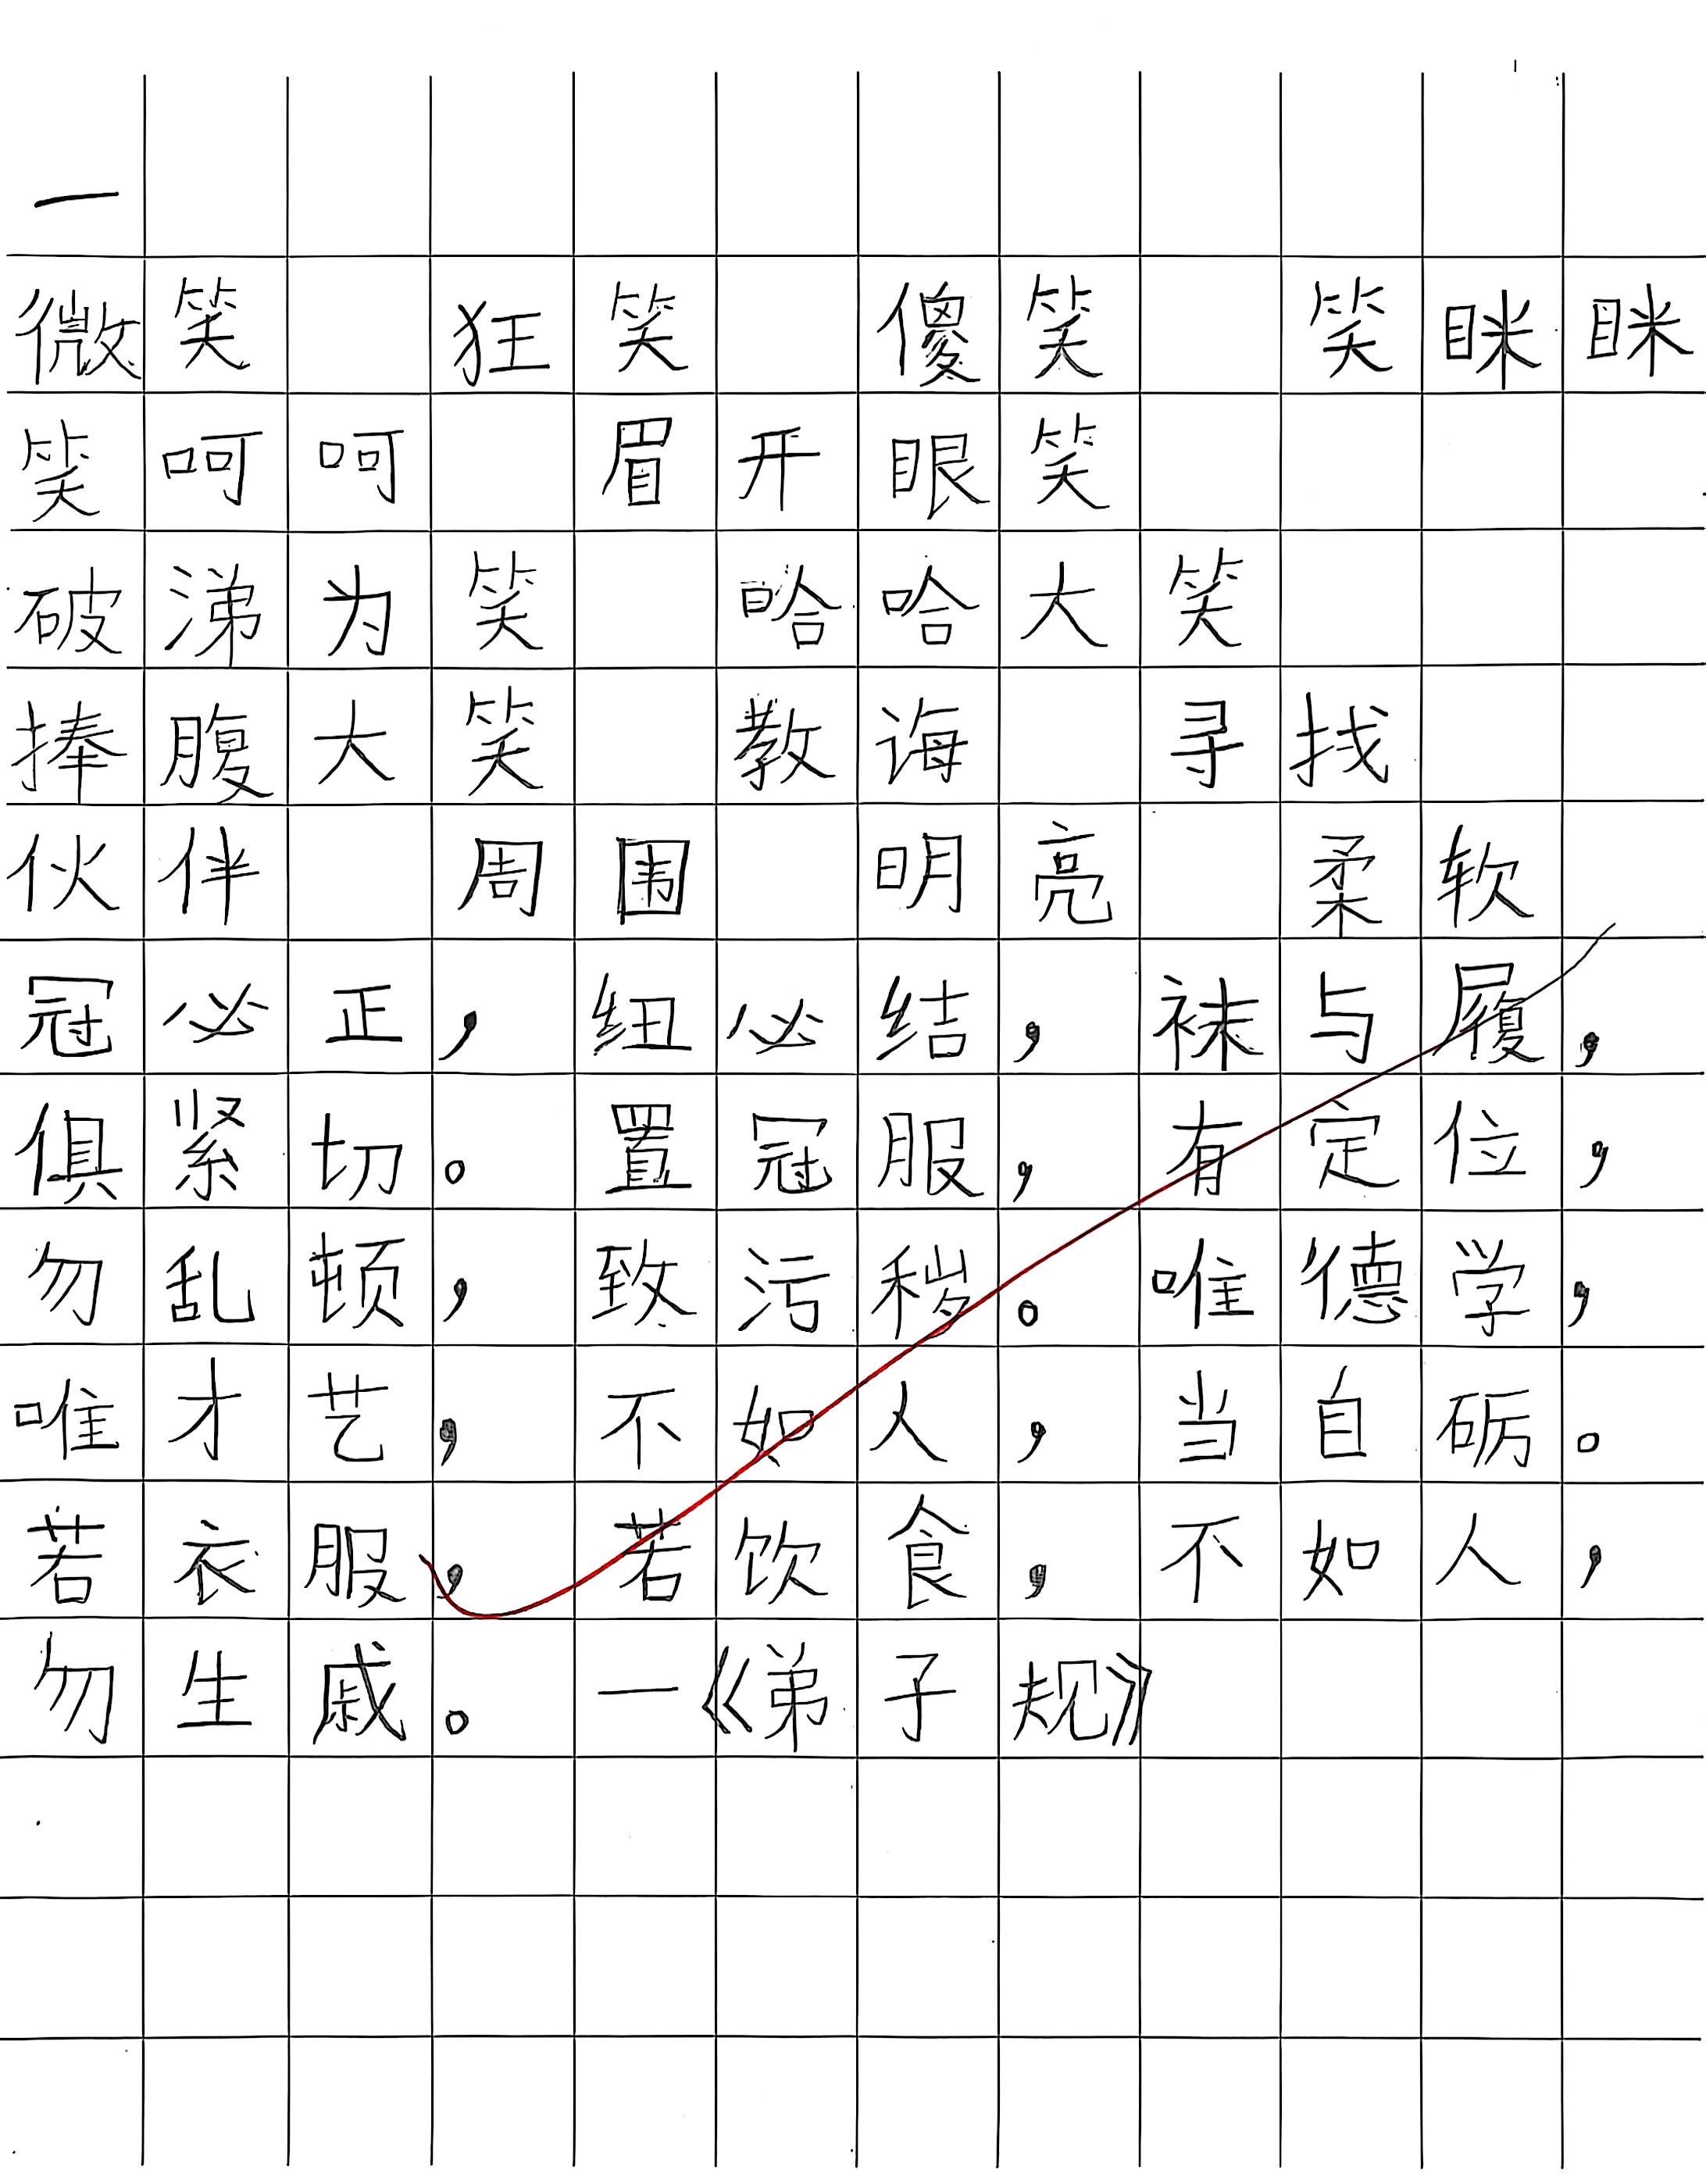 一
微笑 狂笑 傻笑 笑眯眯
笑呵呵 眉开眼笑
破涕为笑 哈哈大笑
捧腹大笑 教诲 寻找
伙伴 周围 明亮 柔软
冠必正，纽必结，袜与履，
俱紧切。置冠服，有定位，
勿乱顿，致污秽。唯德学，
唯才艺，不如人，当自砺。
若衣服，若饮食，不如人，
勿生戚。一《弟子规》